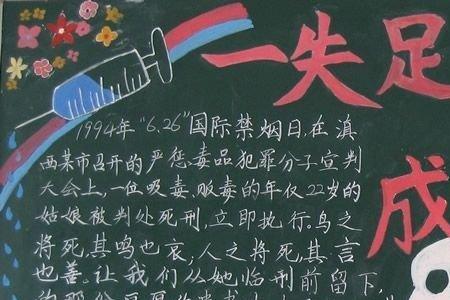 一失足
成
1994年“6.26”国际禁烟日,在滇
西某市召开的严惩毒品犯罪分子宣判
大会上,一位吸毒、贩毒的年仅22岁的
姑娘被判处死刑,立即执行。鸟之
将死,其鸣也哀;人之将死,其言
也善。让我们从她临刑前留下,
的那份